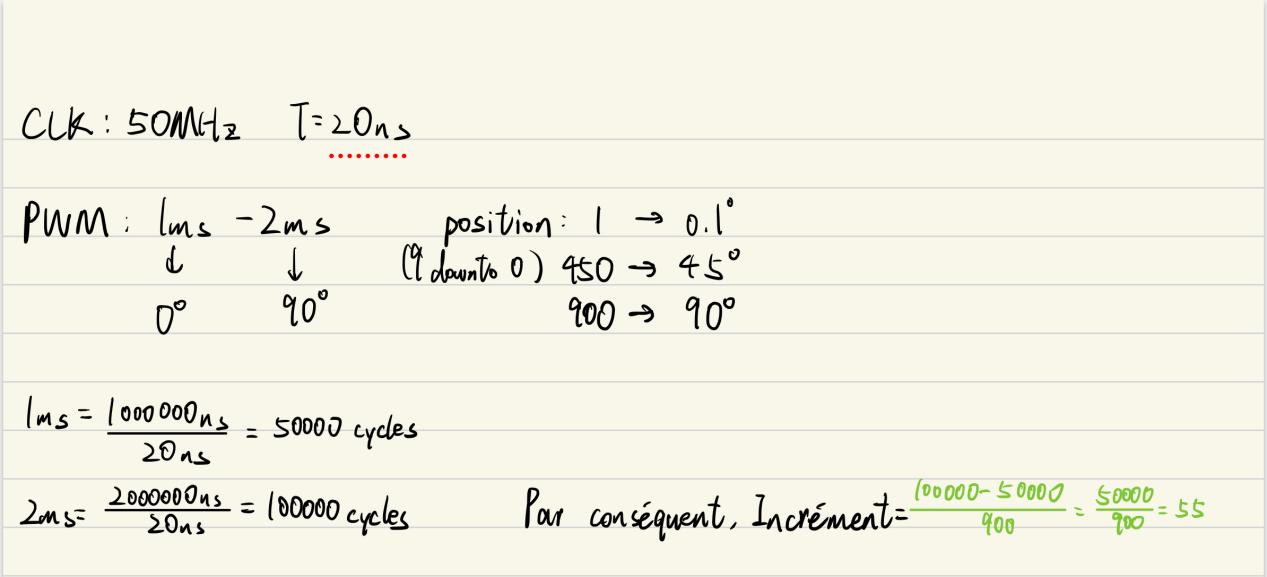 CLK: 50MHz T=20ns
PWM: 1ms -2ms position: 1 → 0.1°
↓ ↓ (9 downto 0) 450 → 45°
0° 90° 900 → 90°
1ms = 1000000ns / 20ns = 50000 cycles
2ms= 2000000ns / 20ns = 100000 cycles Par conséquent, Incrément= 100000-50000 / 900 = 50000 / 900 = 55